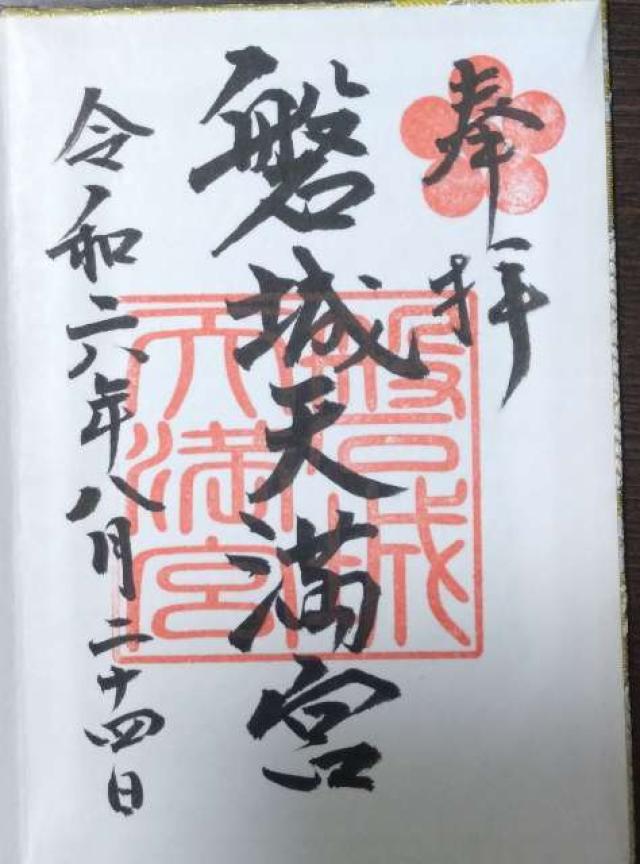 奉拝
磐城天満宮
令和六年八月二十四日
磐城
天満宮